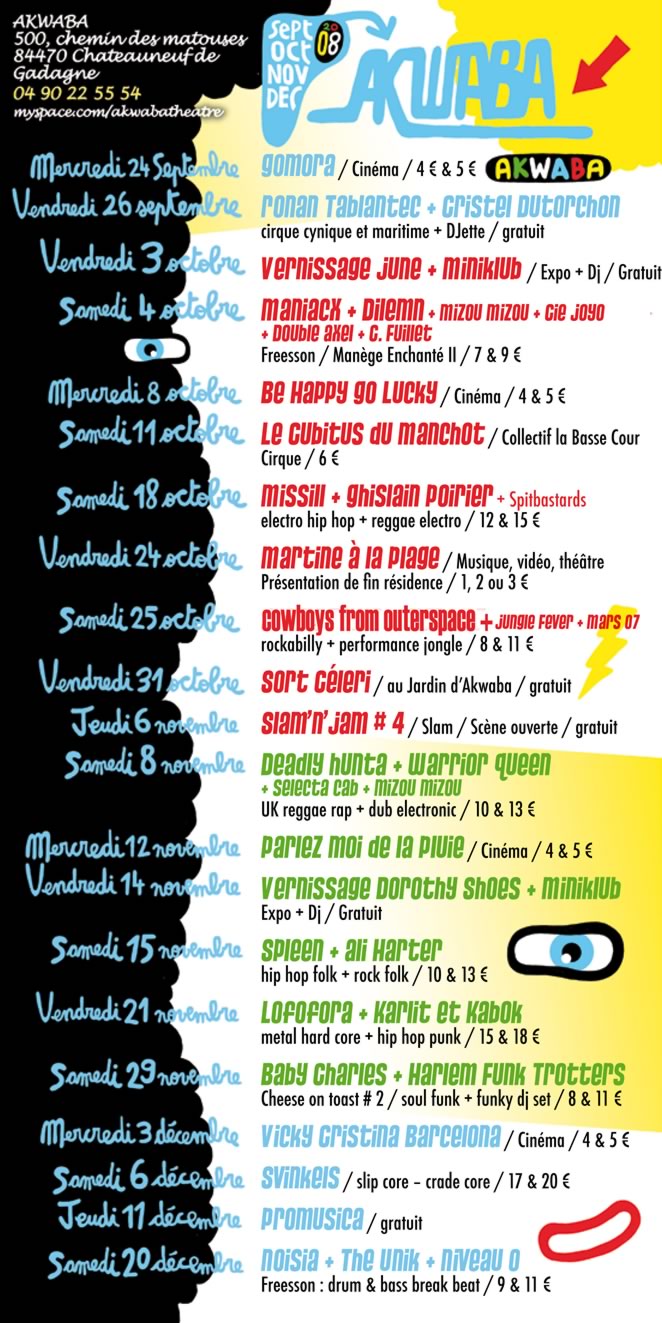 AKWABA
500, chemin des matouses
84470 Chateauneuf de
Gadagne
04 90 22 55 54
myspace.com/akwabatheatre
Sept
Oct
Nov
Dec
2008
AKWABA
Mercredi 24 Septembre gomora / Cinéma / 4 € & 5 € AKWABA
Vendredi 26 septembre ronan Tablantec + Cristel Dutorchon
cirque cynique et maritime + DJette / gratuit
Vendredi 3 octobre vernissage june + miniklub / Expo + Dj / Gratuit
Samedi 4 octobre maniacx + Dilemn + mizou mizou + cie joyo
+ Double axel + C. Fuillet
Freesson / Manège Enchanté II / 7 & 9 €
Mercredi 8 octobre Be Happy go Lucky / Cinéma / 4 & 5 €
Samedi 11 octobre Le Cubitus du manchot / Collectif la Basse Cour
Cirque / 6 €
Samedi 18 octobre missill + ghislain poirier + Spitbastards
electro hip hop + reggae electro / 12 & 15 €
Vendredi 24 octobre martine à la plage / Musique, vidéo, théâtre
Présentation de fin résidence / 1, 2 ou 3 €
Samedi 25 octobre cowboys from outerspace + jungle Fever + mars 07
rockabilly + performance jongle / 8 & 11 €
Vendredi 31 octobre sort céleri / au Jardin d'Akwaba / gratuit
Jeudi 6 novembre slam'n'jam # 4 / Slam / Scène ouverte / gratuit
Samedi 8 novembre Deadly hunta + warrior queen
+ selecta cab + mizou mizou
UK reggae rap + dub electronic / 10 & 13 €
Mercredi 12 novembre parlez moi de la pluie / Cinéma / 4 & 5 €
Vendredi 14 novembre vernissage Dorothy shoes + miniklub
Expo + Dj / Gratuit
Samedi 15 novembre spleen + ali Harter
hip hop folk + rock folk / 10 & 13 €
Vendredi 21 novembre Lofofora + Karlit et Kabok
metal hard core + hip hop punk / 15 & 18 €
Samedi 29 novembre Baby Charles + Harlem Funk Trotters
Cheese on toast # 2 / soul funk + funky dj set / 8 & 11 €
Mercredi 3 décembre Vicky Cristina Barcelona / Cinéma / 4 & 5 €
Samedi 6 décembre svinkels / slip core – crade core / 17 & 20 €
Jeudi 11 décembre promusica / gratuit
Samedi 20 décembre noisia + The unik + niveau 0
Freesson : drum & bass break beat / 9 & 11 €